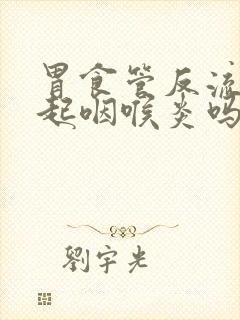 胃食管反流
起咽喉炎吗
劉宇光